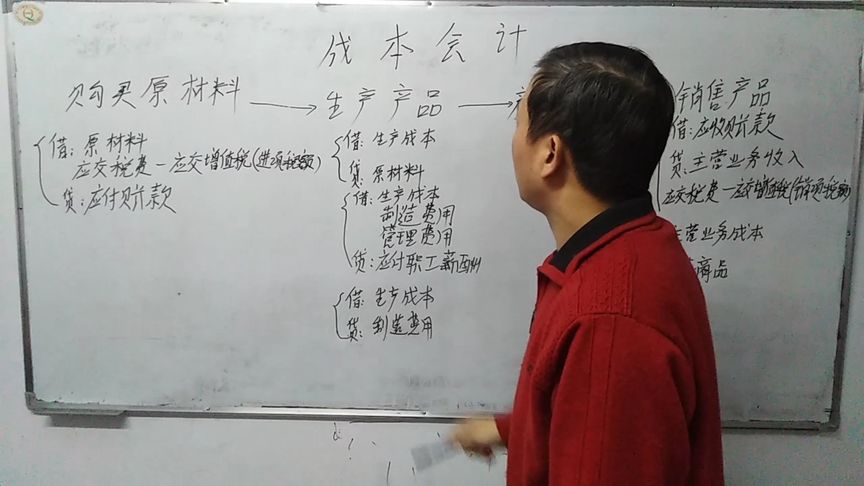 成本会计
购买原材料 → 生产产品 →
借: 原材料
应交税费-应交增值税(进项税额)
贷: 应付账款
借: 生产成本
贷: 原材料
借: 生产成本
制造费用
管理费用
贷: 应付职工薪酬
借: 生产成本
贷: 制造费用
销售产品
借: 应收账款
贷: 主营业务收入
应交税费-应交增值税(销项税额)
主营业务成本
商品